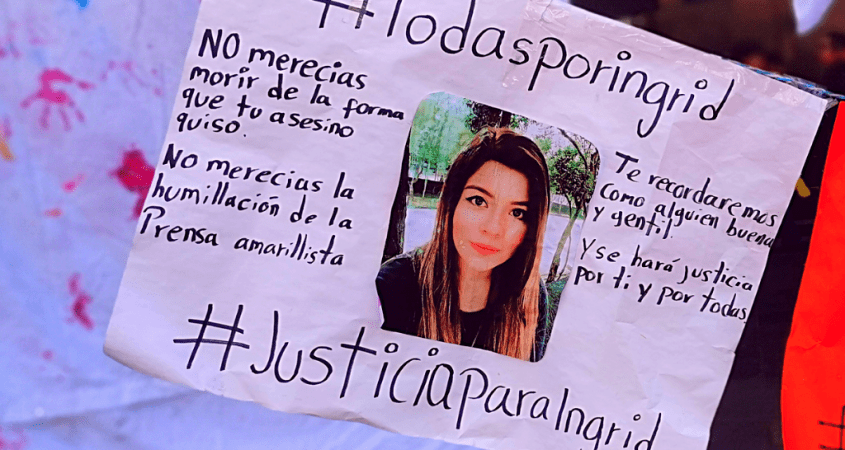 #TodasporIngrid
NO merecias
morir de la forma
que tu asesino
quiso.
No merecias la
humillación de la
Prensa amarillista
Te recordaremos
como alguien buena
y gentil.
Y se hará justicia
por ti y por todas.
#JusticiaParaIngrid